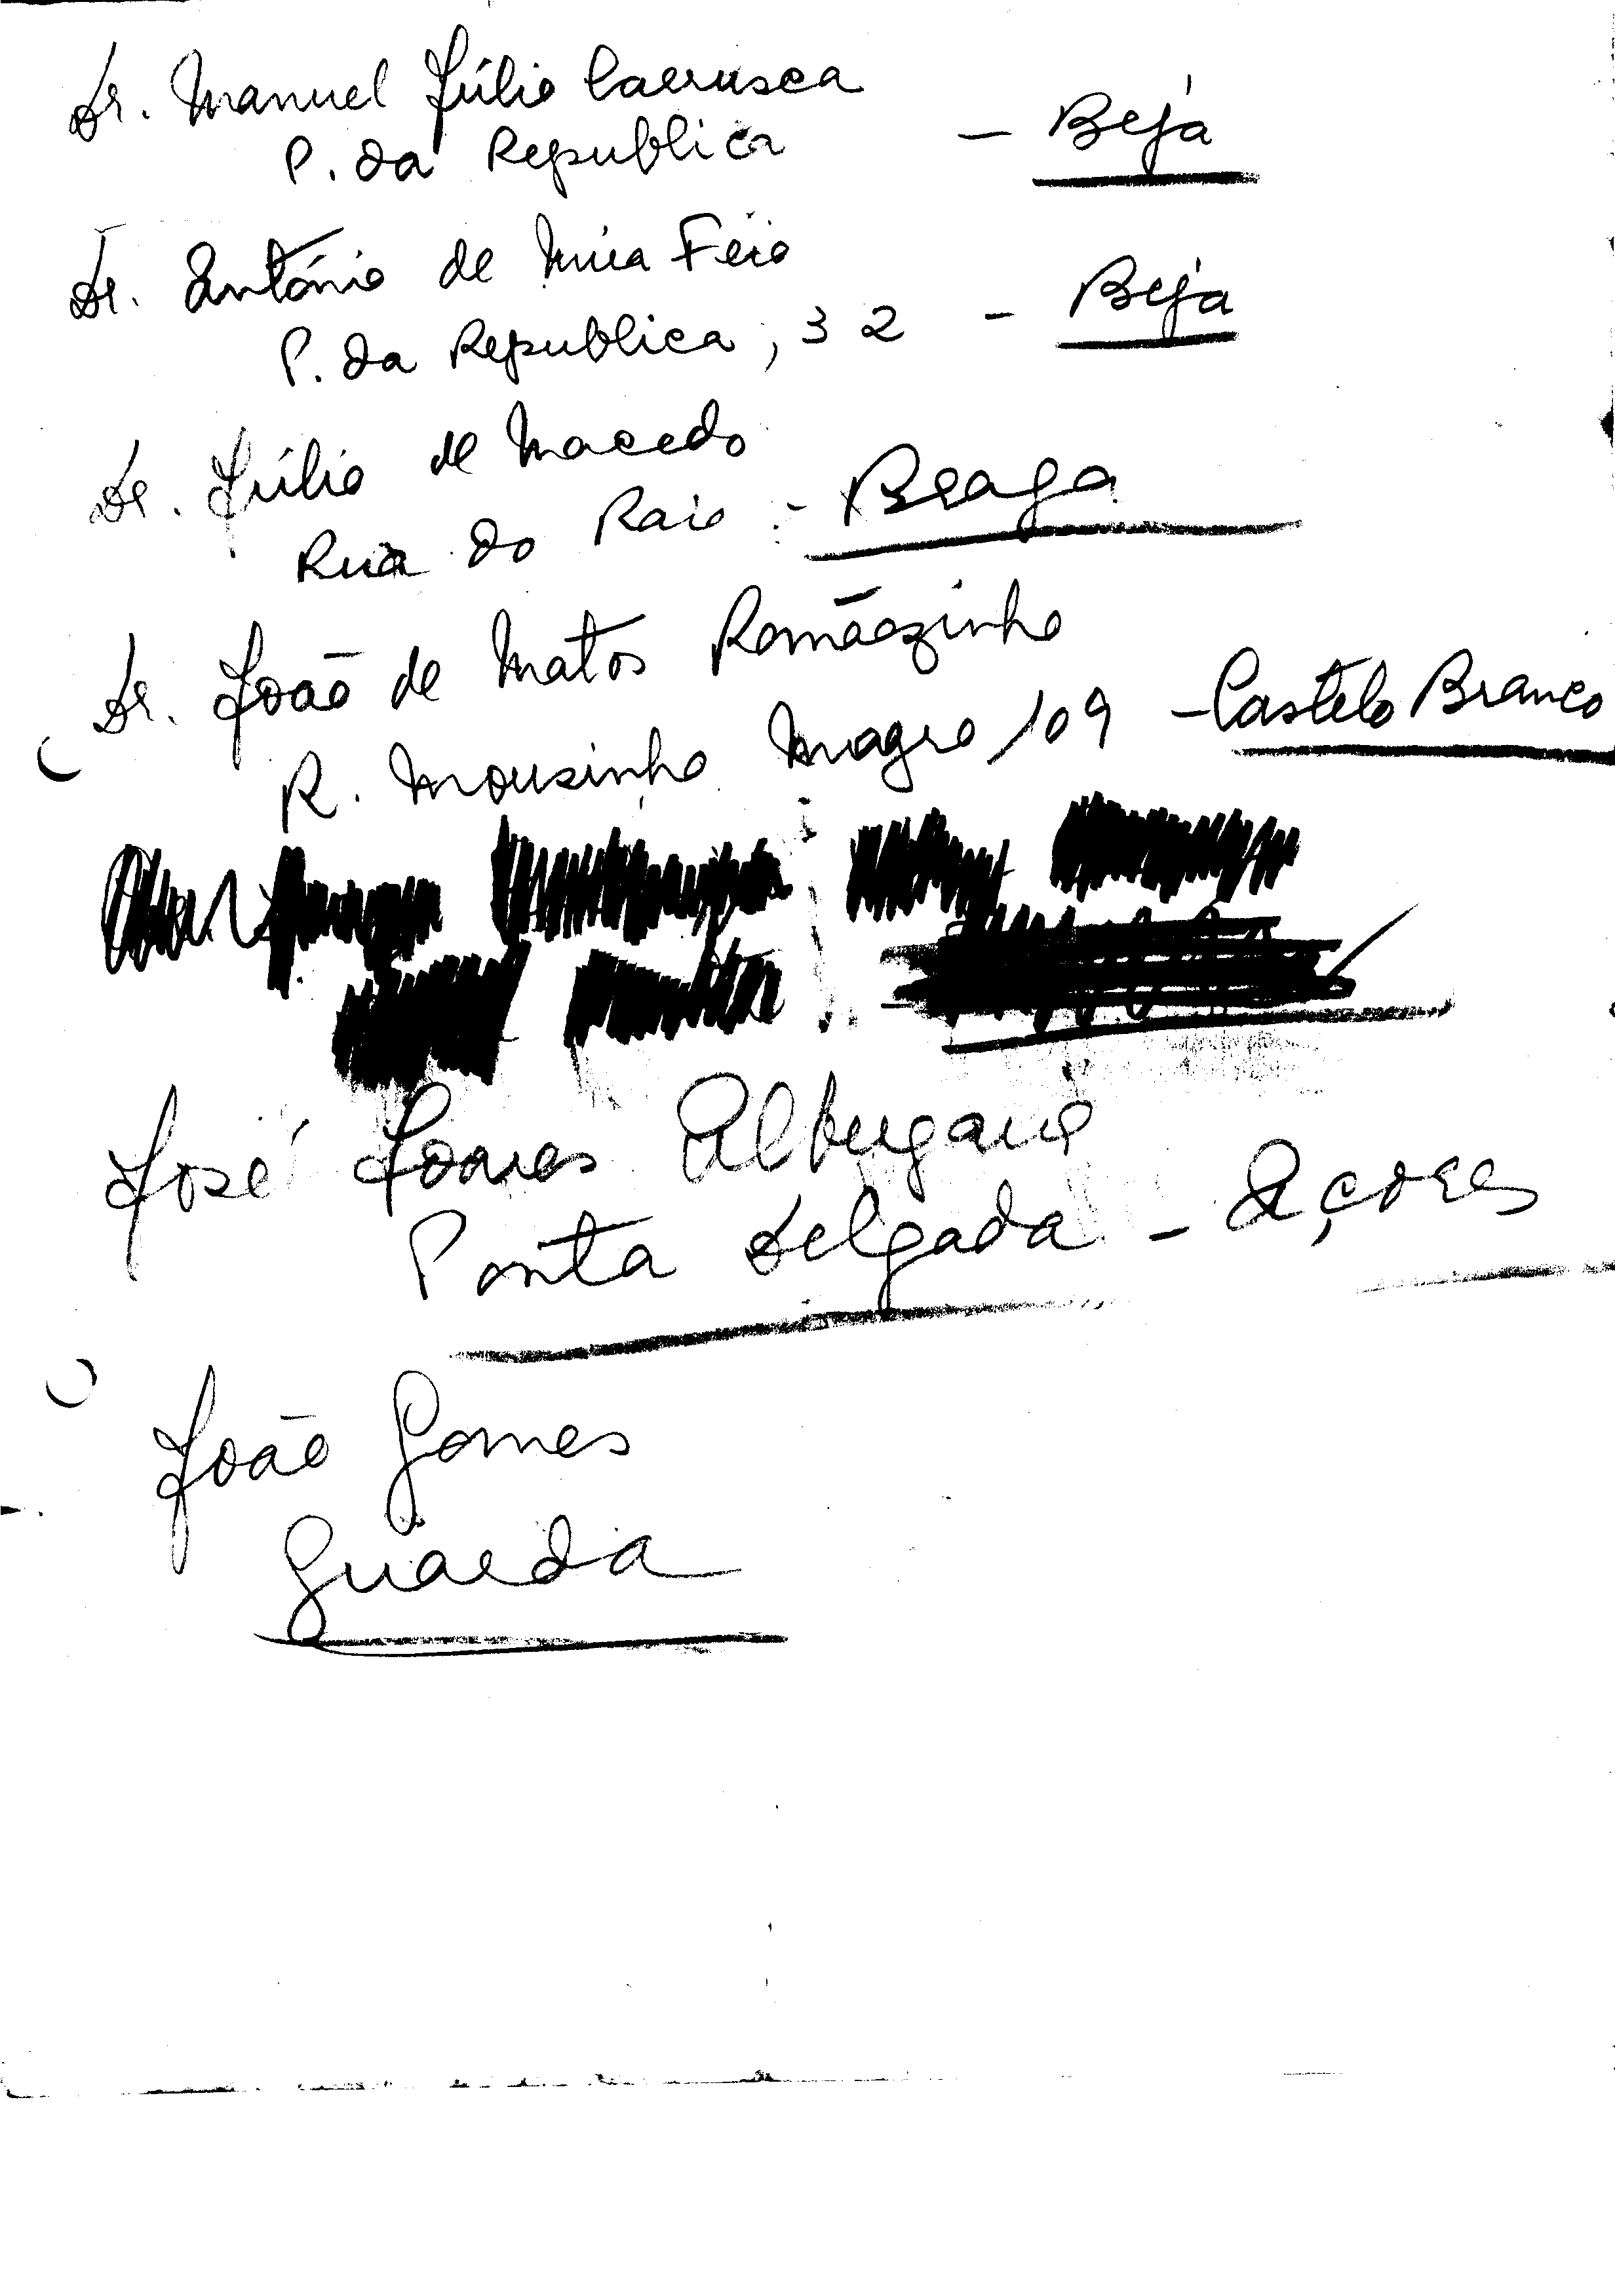 Dr. Manuel Júlio Carrusca
P. da Republica - Beja
Dr. António de Mira Feio
P. da Republica, 32 - Beja
Dr. Júlio de Macedo
Rua do Raio - Braga
Dr. João de Matos Romãozinho
R. Mousinho Magro 109 - Castelo Branco
José Soares Albergaria
Ponta Delgada - Açores
João Gomes
Guarda